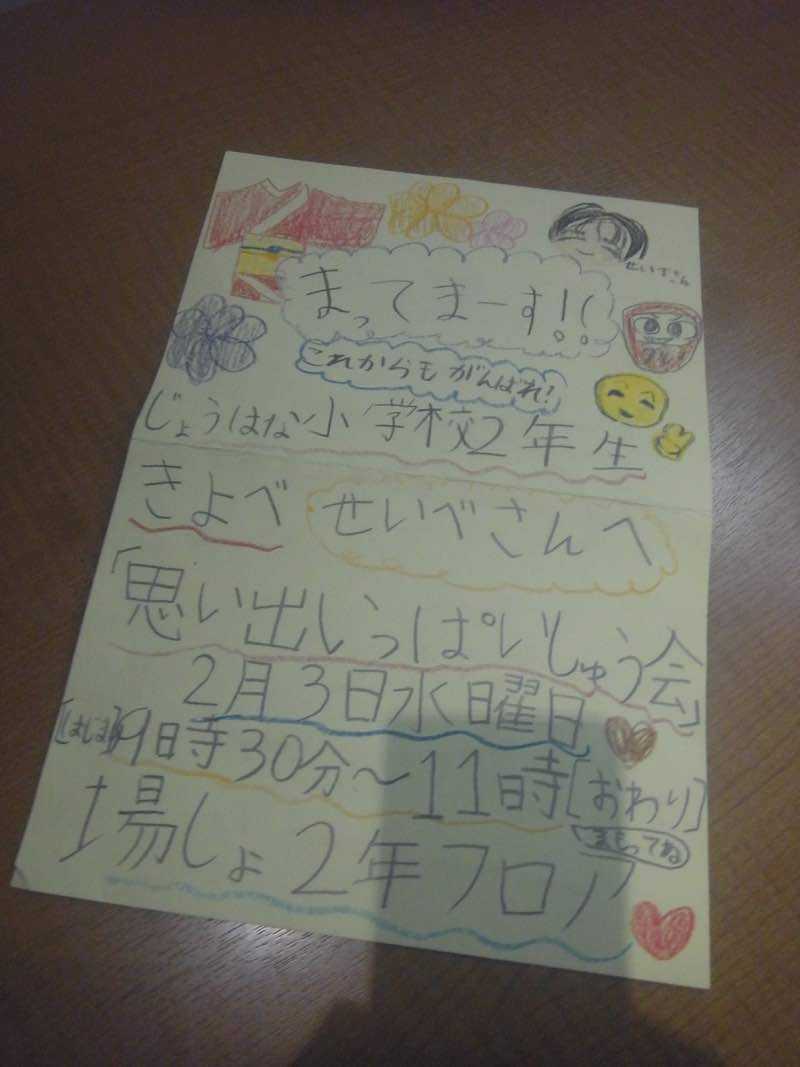 せいべさん
まってまーす!!
これからもがんばれ!
じょうはな小学校2年生
きよべ せいべさんへ
「思い出いっぱいしゅう会」
2月3日水曜日
[はじまり]9時30分〜11時[おわり]
まもってね
場しょ 2年フロア